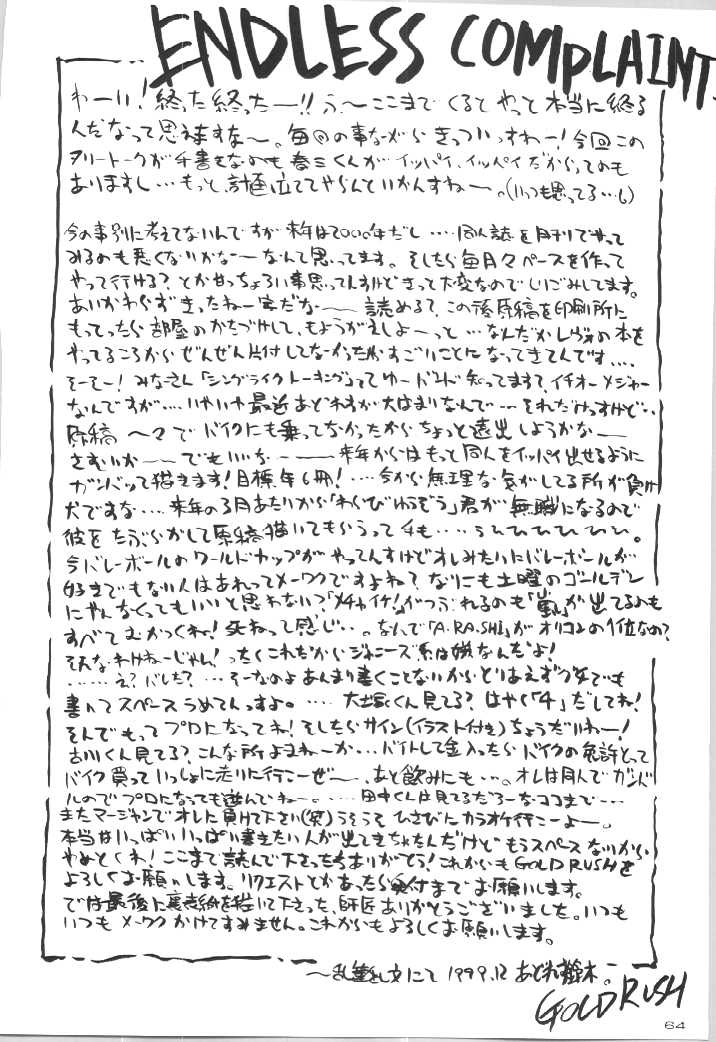 ENDLESS COMPLAINT
わーい!終った終ったー!!う、〜ここまでくるとやっと本当に終る
んだなって思いますな〜。毎回の事ながらきっついっすわー!今回この
フリートークが手書きなのも春三くんがイッパイ、イッパイだからってのも
ありますし…もっと計画立ててやらんといかんすねー。(いつも思ってる…し)
今の事別に考えてないんですが来年は2000年だし‥‥同人誌を月刊でやって
みるのも悪くないかなーなんて思ってます。そしたら毎月々ペースを作って
やって行ける?とかせっちょろい事思ってんすけどきって大変なのでしりごみしてます。
あいかわらずきったねー字だな〜 読める?この後原稿を印刷所に
もってったら部屋のかたづけして、もようがえしよーっと…なんだかレヴォの本を
やってるころからぜんぜん片付してなかったからすごいことになってきてんです‥‥
そーそー!みなさん「シングライクトーキング」ってゆーバンド知ってます?イチオーメジャー
なんですが‥‥いやいや最近あどれすが大はまりなんで…それだけっすけど‥
原稿〜々でバイクにも乗ってなかったからちょっと遠出しようかなー
さむいかー―でもいいなー― 来年からはもっと同人をイッパイ出せるように
ガンバって描きます!目標年6冊!‥‥今から無理な気がしてる所が負け
犬ですな‥‥来年の3月あたりから「わらびゆうぞう」君が無職になるので
彼をたぶらかして原稿描いてもらうって手も‥‥うひひひひひひ。
今バレーボールのワールドカップがやってんすけどオレみたいにバレーボールが
好きでもない人はあれってメーワクですよね?なにも土曜のゴールデン
にやんなくってもいいと思わない?「メチャイケ!」がつぶれるのも「嵐」が出てるのも
すべてむかつくわ!死ねって感じ…。なんで「A・RA・SHI」がオリコンの1位なの?
そんなわけねーじゃん!ったくこれだからジャニーズ系は嫌なんだよ!
‥‥‥え?バレた?…そーなのよあんまり書くことないからとりあえず少しでも
書いてスペースうめてんっすよ。‥‥大塚くん見てる?はやく「4」だしてね!
そんでもってプロになってね!そしたらサイン(イラスト付き)ちょうだいねー!
古川くん見てる?こんな所よまねーか…バイトして金入ったらバイクの免許とって
バイク買っていっしょに走りに行こーぜ〜、あと飲みにも…。オレは同人でガンバ
ルのでプロになっても遊んでねー。‥‥田中くんは見てるだろーなココまで…
またマージャンでオレに負けて下さい(笑)うそうそひさびにカラオケ行こーよー。
本当はいっぱいいっぱい書きたい人が出てきちゃたんだけどもうスペースないから
やめとくわ!ここまで読んで下さった方ありがとう!これからもGOLD RUSHを
よろしくお願いします。リクエストとかあったら受付までお願いします。
では最後に裏表紙を描いて下さった、師匠ありがとうございました。いつも
いつもメーワクかけてすみません。これからもよろしくお願いします。
〜乱筆乱文にて 1999.12 あどれす鈴木。
GOLD RUSH
64